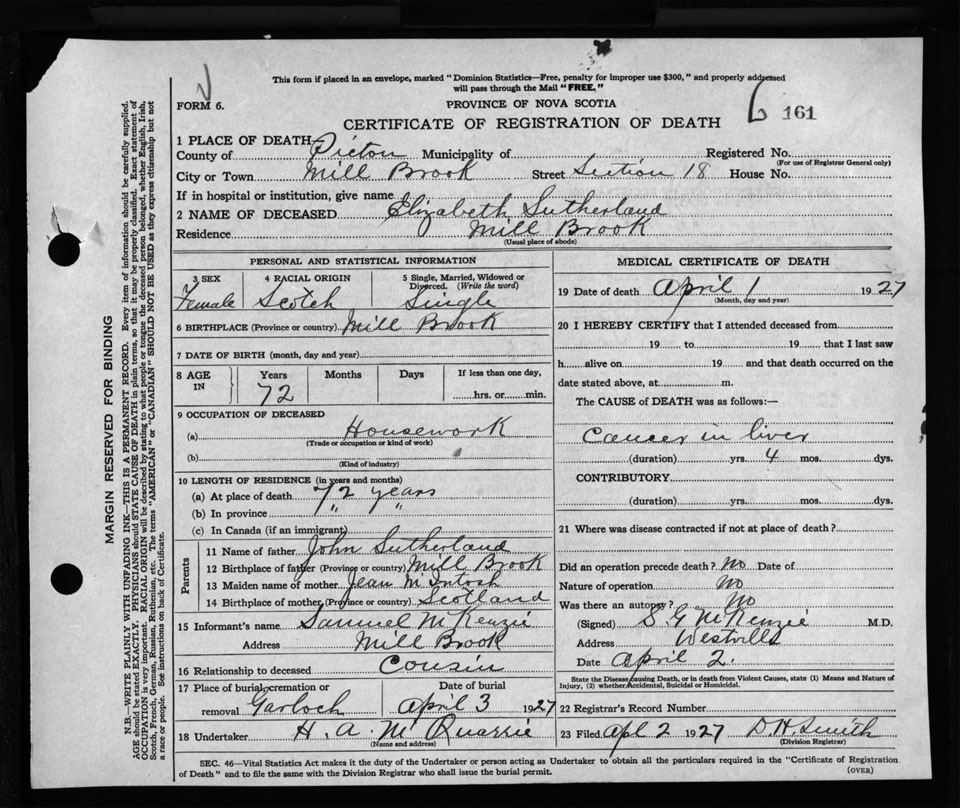 This form if placed in an envelope, marked "Dominion Statistics—Free, penalty for improper use $300," and properly addressed
will pass through the Mail "FREE."
FORM 6.
PROVINCE OF NOVA SCOTIA
6 161
CERTIFICATE OF REGISTRATION OF DEATH
1 PLACE OF DEATH
County of Pictou Municipality of Registered No.
(For use of Registrar General only)
City or Town Mill Brook Street Section 18 House No.
If in hospital or institution, give name
2 NAME OF DECEASED Elizabeth Sutherland
Residence Mill Brook
(Usual place of abode)
PERSONAL AND STATISTICAL INFORMATION
3 SEX 4 RACIAL ORIGIN 5 Single, Married, Widowed or
Divorced. (Write the word)
Female Scotch Single
6 BIRTHPLACE (Province or country) Mill Brook
7 DATE OF BIRTH (month, day and year)
8 AGE IN Years Months Days If less than one day,
72 hrs. or min.
9 OCCUPATION OF DECEASED
(a) Housework
(Trade or occupation or kind of work)
(b)
(Kind of industry)
10 LENGTH OF RESIDENCE (in years and months)
(a) At place of death 72 years
(b) In province " "
(c) In Canada (if an immigrant)
Parents
11 Name of father John Sutherland
12 Birthplace of father (Province or country) Mill Brook
13 Maiden name of mother Jean McIntosh
14 Birthplace of mother (Province or country) Scotland
15 Informant's name Samuel McKenzie
Address Mill Brook
16 Relationship to deceased Cousin
17 Place of burial, cremation or Date of burial
removal Garloch April 3 1927
18 Undertaker H. A. McQuarrie
(Name and address)
MEDICAL CERTIFICATE OF DEATH
19 Date of death April 1 1927
(Month, day and year)
20 I HEREBY CERTIFY that I attended deceased from
19 to 19 that I last saw
h alive on 19 and that death occurred on the
date stated above, at m.
The CAUSE of DEATH was as follows:—
Cancer in liver
(duration) yrs. 4 mos. dys.
CONTRIBUTORY
(duration) yrs. mos. dys.
21 Where was disease contracted if not at place of death?
Did an operation precede death? No Date of
Nature of operation No
Was there an autopsy? No
(Signed) S G McKenzie M.D.
Address Westville
Date April 2.
State the Disease causing Death, or in death from Violent Causes, state (1) Means and Nature of
Injury, (2) whether Accidental, Suicidal or Homicidal.
22 Registrar's Record Number
23 Filed Apl 2 1927 D. H. Smith
(Division Registrar)
SEC. 46—Vital Statistics Act makes it the duty of the Undertaker or person acting as Undertaker to obtain all the particulars required in the "Certificate of Registration
of Death" and to file the same with the Division Registrar who shall issue the burial permit. (OVER)
MARGIN RESERVED FOR BINDING
N.B.—WRITE PLAINLY WITH UNFADING INK—THIS IS A PERMANENT RECORD. Every item of information should be carefully supplied.
AGE should be stated EXACTLY. PHYSICIANS should STATE CAUSE OF DEATH in plain terms, so that it may be properly classified. Exact statement of
OCCUPATION is very important. RACIAL ORIGIN will be described by stating to what people or tongue the deceased person belonged, whether English, Irish,
Scotch, French, German, Russian, Ruthenian, etc. The terms "AMERICAN" or "CANADIAN" SHOULD NOT BE USED as they express citizenship but not
a race or people. See instructions on back of Certificate.